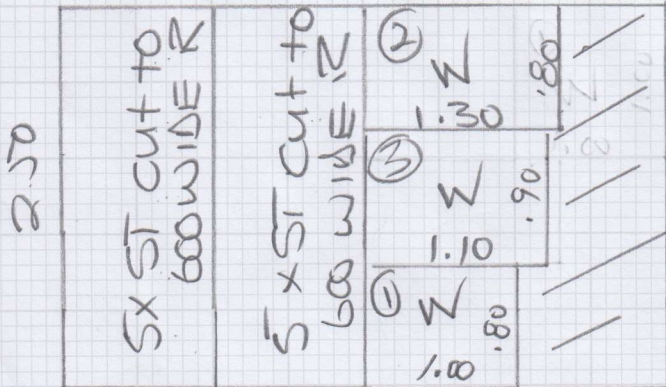 2.50
5x ST CUT TO
600 WIDE R
5 x ST CUT TO
600 WIDE R
② W
.80
1.30
③ W
.90
1.10
① W
.80
1.00